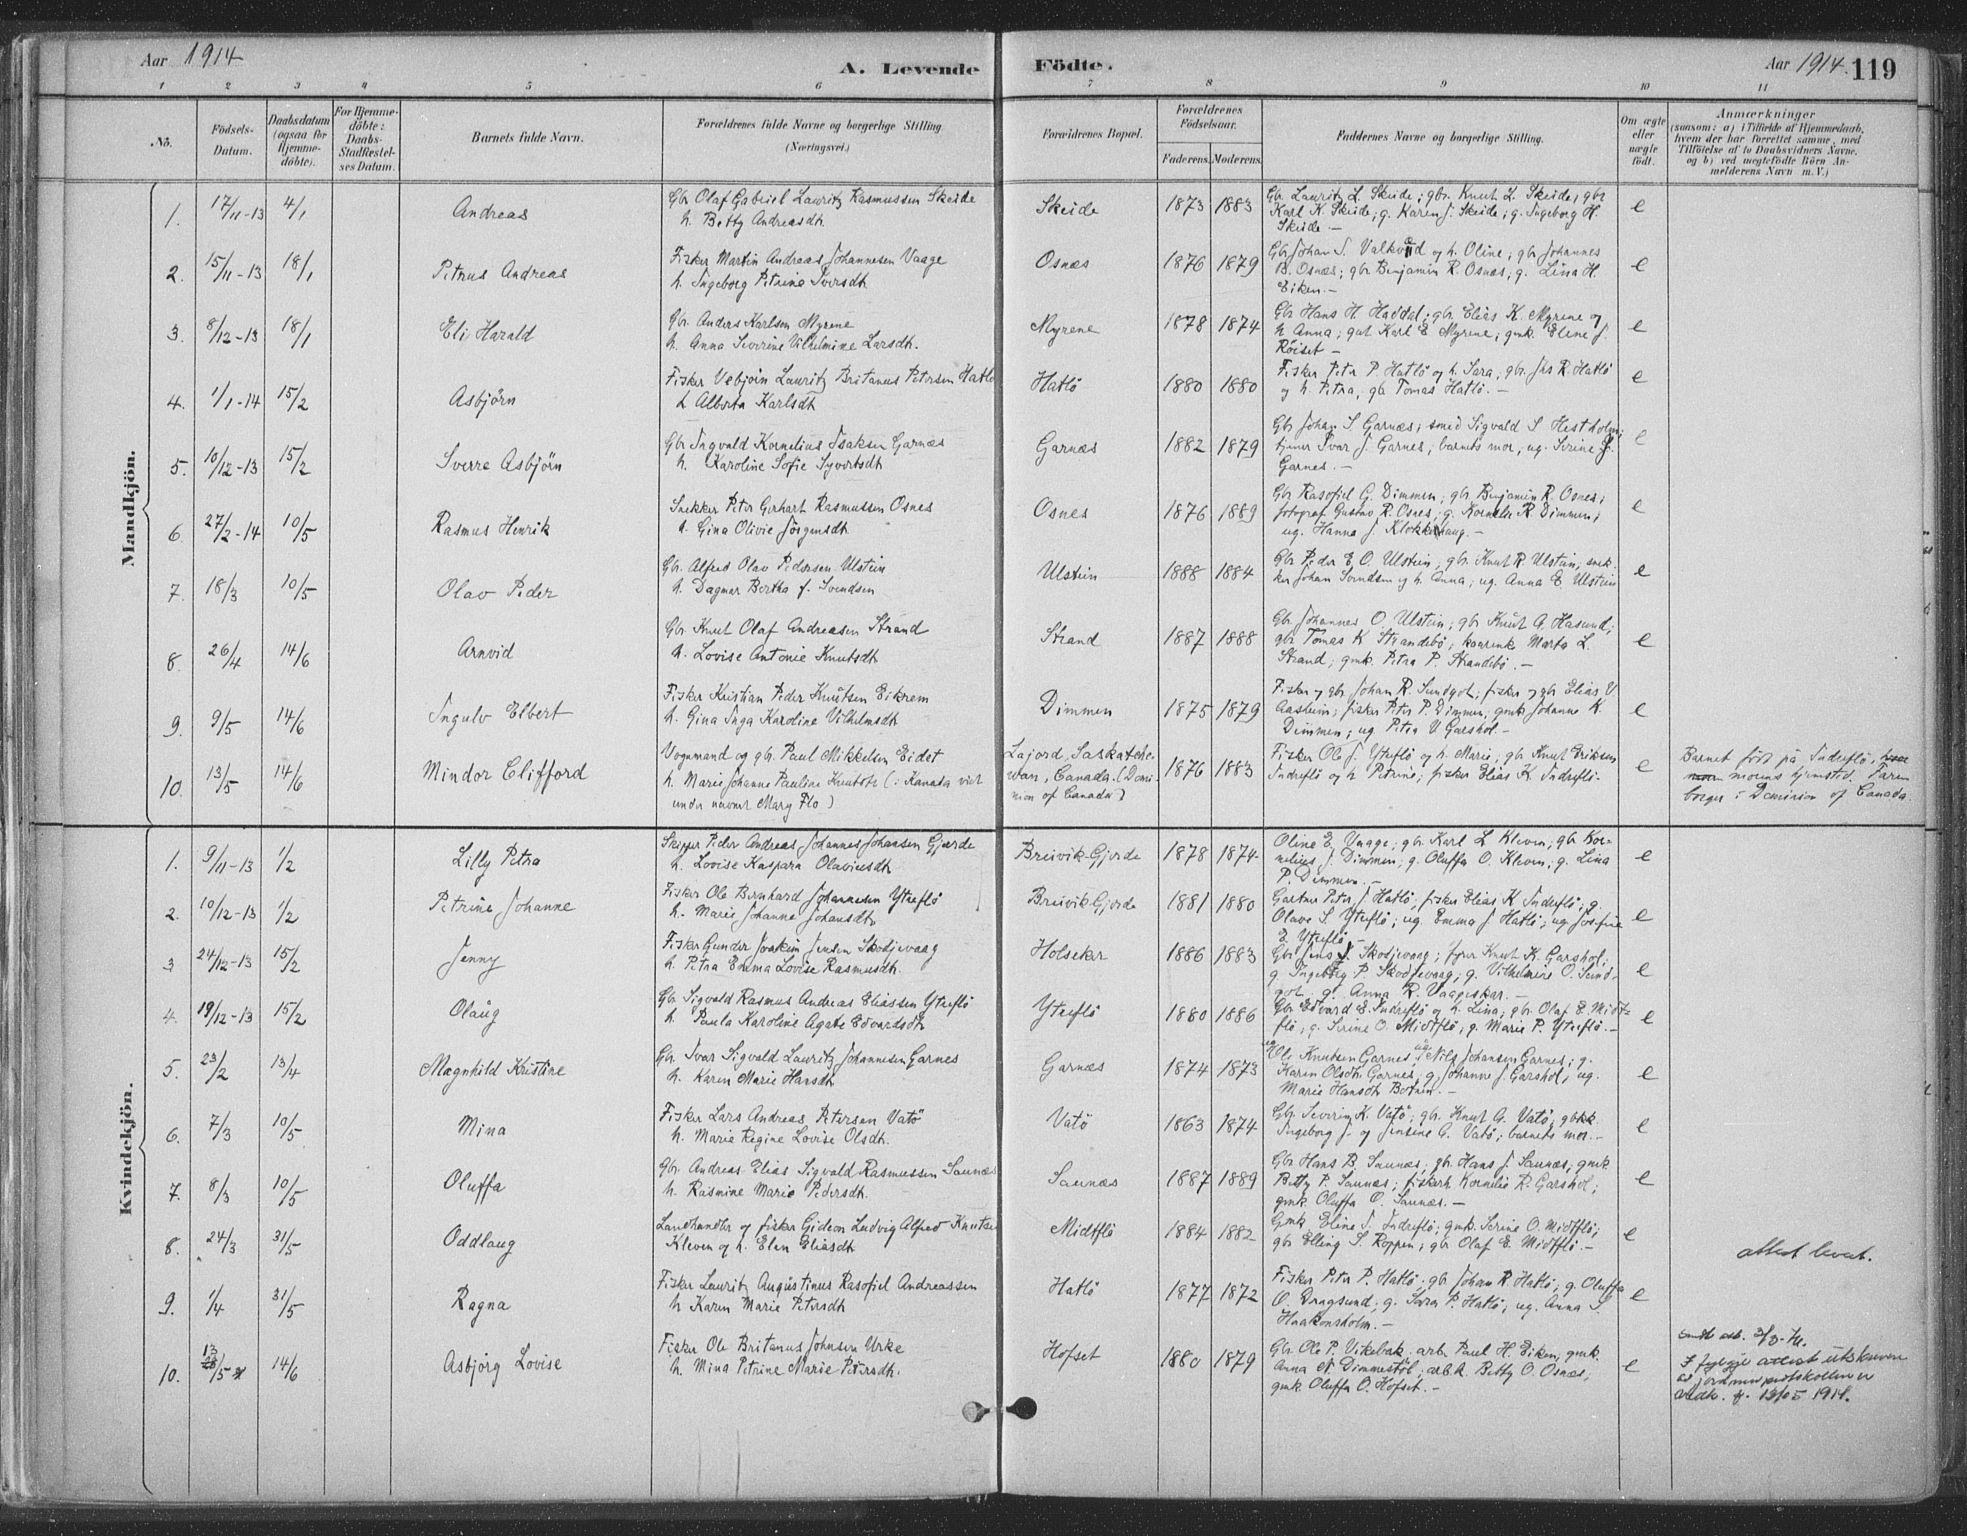 Aar 1914
A. Levende
Födte.
Aar 1914. 119
1 2 3 4 5 6 7 8 9 10 11
No.
Födsels-
Datum.
Daabsdatum
(ogsaa for
Hjemme-
döbte).
For Hjemme-
döbte:
Daabs-
Stadfæstel-
ses Datum.
Barnets fulde Navn.
Forældrenes fulde Navne og borgerlige Stilling
(Næringsvei.)
Forældrenes Bopæl.
Forældrenes
Födselsaar.
Faderens. Moderens.
Faddernes Navne og borgerlige Stilling.
Om ægte
eller
uægte
födt.
Anmærkninger
(saasom: a) i Tilfælde af Hjemmedaab,
hvem der har forrettet samme, med
Tilföielse af to Daabsvidners Navne,
og b) ved uegtefödte Börn An-
melderens Navn m. V.)
Mandkjön.
1. 17/11-13 4/1 Andreas
Gbr Olaf Gabriel Lauritz Rasmussen Skeide
h. Betty Andreasdt.
Skeide 1873 1883
Gbr Lauritz L. Skeide; gbr. Knut L. Skeide, gbr
Karl K. Skeide; g. Karen J. Skeide; g. Ingeborg H.
Skeide. —
e
2. 15/11-13 18/1 Petrus Andreas
Fisker Martin Andreas Johannesen Vaage
h. Ingeborg Petrine Iversdt.
Osnæs 1876 1879
Gbr Johan S. og h. Oline; gbr Johannes
B. Osnæs; gbr Benjamin R. Osnæs, g. Lina H.
Eiken. —
e
3. 8/12-13 18/1 Eli Harald
Gbr. Anders Karlsen Myrene
h. Anna Severine Vilhelmine Larsdt.
Myrene 1878 1874
Gbr Hans H Haddal; gbr. Elias K. Myrene og
h Anna; gut Karl E Myrene; gmk. Eline J.
Röiset —
e
4. 1/1-14 15/2 Asbjörn
Fisker Vebjörn Lauritz Britanus Petersen Hatlö
h Alberta Karlsdt
Hatlö 1880 1880
Fisker Peter P. Hatlö og h. Sara; gbr. Jhs R. Hatlö
og h. Petra, gb Tomas Hatlö. —
e
5. 10/12-13 15/2 Sverre Asbjörn
Gbr Ingvald Kornelius Isaksen Garnæs
h. Karoline Sofie Syvertsdt
Garnæs 1882 1879
Gbr Johan S. Garnæs; smed Sigvald S Hestholm;
tjener Ivar J. Garnes, barnets mor, ug. Serine J.
Garnes. —
e
6. 27/2-14 10/5 Rasmus Henrik
Snekker Peter Gerhart Rasmussen Osnes
h. Gina Olivie Jörgensdt
Osnes 1876 1889
Gbr Rasofiel G. Dimmen; gbr. Benjamin R. Osnes;
fotograf Gustav R. Osnes; g. Kornelie R. Dimmen;
ug. Hanna J. Klokkehaug. —
e
7. 18/3 10/5 Olav Peder
Gbr. Alfred Olav Pedersen Ulstein
h. Dagmar Bertha f. Svendsen
Ulstein 1888 1884
Gbr Peder E. O. Ulstein; gbr. Knut R. Ulstein, snek-
ker Johan Svendsen og h. Anna; ug. Anna E Ulstein
e
8. 26/4 14/6 Arnvid
Gbr. Knut Olaf Andreasen Strand
h. Lovise Antonie Knutsdt
Strand 1887 1888
Gbr Johannes O. Ulstein; gbr Knut A. Hasund;
gbr Tomas K Strandebö; kaarenk. Marta L.
Strand; gmk. Petra P. Strandebö. —
e
9. 9/5 14/6 Ingulv Elbert
Fisker Kristian Peder Knutsen Eikrem
h. Gina Inga Karoline Vilhelmsdt
Dimmen 1875 1879
Fisker og gbr Johan R. Sundgot; fisker og gb Elias V
Aasheim; fisker Peter P. Dimmen; gmk. Johanne K.
Dimmen; ug Petra V Garshol. —
e
10. 13/5 14/6 Mindor Clifford
Vognmand og gbr. Paul Mikkelsen Eidet
h. Marie Johanne Pauline Knutsdt (i Kanada viet
under navnet Mary Flo)
Lajord, Saskatche-
wan, Canada. (Domi-
nion of Canada)
1876 1883
Fisker Ole J. Ytreflö og h. Marie; gbr Knut Eriksen
Indreflö og h Petrine; fisker Elias K Indreflö.
e
Barnet födt på Indreflö,
morens hjemsted. Faren
borger i Dominion of Canada.
Kvindekjön.
1. 9/11-13 1/2 Lilly Petra
Skipper Peder Andreas Johannes Johansen Gjærde
h. Lovise Kaspara Olaviusdt
Breivik-Gjerde 1878 1874
Oline E. Vaage; gbr. Karl L Kleven; gbr Kor-
nelius J. Dimmen; g. Oluffa O. Kleven; g. Lina
P. Dimmen. —
e
2. 10/12-13 1/2 Petrine Johanne
Fisker Ole Bernhard Johannesen Ytreflö
h. Marie Johanne Johansdt.
Breivik-Gjerde 1881 1880
Gartner Peter J. Hatlö; fisker Elias K Indreflö; g.
Olave S. Ytreflö; ug. Emma J Hatlö; ug Josfine
E. Ytreflö —
e
3 24/12-13 15/2 Jenny
Fisker Gunder Joakim Jensen Skodjevaag
h. Petra Emma Lovise Rasmusdt.
Holseker 1886 1883
Gbr Jens J. Skodjevaag; fyrer Knut K. Garshol;
g Ingeborg P. Skodjevaag; g. Vilhelmine O. Sund-
got. g. Anna R. Vaageskar. —
e
4. 19/12-13 15/2 Olaug
Gbr Sigvald Rasmus Andreas Eliassen Ytreflö
h. Paula Karoline Agate Edvardsdt
Ytreflö 1880 1886
Gbr Edvard E. Indreflö og h Lina; gbr Olaf E. Midt-
flö; g. Serine O. Midtflö; g. Marie P. Ytreflö. —
e
5. 23/2 13/4 Magnhild Kristine
Gbr. Ivar Sigvald Lauritz Johannesen Garnes
h. Karen Marie Hansdt
Garnæs 1874 1873
Ole Knutsen Garnes; Nils Johansen Garnes; g.
Karen Olsdt. Garnes, g. Johanne J. Garshol; ug.
Marie Hansdt Botnen. —
e
6. 7/3 10/5 Mina
Fisker Lars Andreas Petersen Vatö
h. Marie Regine Lovise Olsdt.
Vatö 1863 1874
Gbr. Severin K. Vatö; gbr. Knut A. Vatö; gbkk.
Ingeborg J. og Jensine A. Vatö; barnets mor. —
e
7. 8/3 10/5 Oluffa
Gbr. Andreas Elias Sigvald Rasmussen Saunæs
h. Rasmine Marie Pedersdt.
Saunæs 1887 1889
Gbr Hans B. Saunæs; gb. Hans J. Saunæs; gmk
Betty P. Saunæs; fiskerh. Kornelie R. Garshol;
gmk Oluffa O. Saunæs. —
e
8. 24/3 31/5 Oddlaug
Landhandler og fisker Gideon Ludvig Alfred Knutsen
Kleven og h. Elen Eliasdt
Midtflö 1884 1882
Gmk Eline S. Indreflö; gmk. Serine O. Midtflö;
gbr Elling S. Roppen; gbr Olaf E. Midtflö. —
e
attest levert.
9. 1/4 31/5 Ragna
Fisker Lauritz Augustinus Rasofiel Andreassen
h. Karen Marie Petersdt
Hatlö 1877 1872
Fisker Peter P. Hatlö; gbr Johan R. Hatlö; g. Oluffa
O. Dragsund; g. Sara P. Hatlö; ug. Anna S.
Haakonsholm. —
e
10. 13/5 14/6 Asbjörg Lovise
Fisker Ole Britanus Johnsen Urke
h. Mina Petrine Marie Petersdt.
Hofset 1880 1879
Gbr. Ole P. Vikebak; arb. Paul H. Eiken; gmk.
Anna N Dimmestöl; arb.k. Betty O. Osnæs;
gmk Oluffa O. Hofset. —
e
I fylgje attest utskreven
av jordmorprotokollen er
13/5 1914.